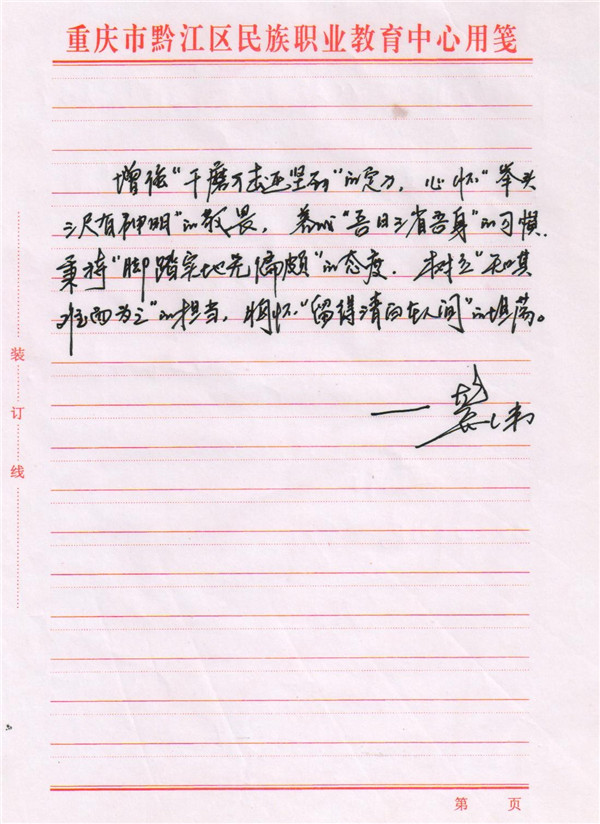 重庆市黔江区民族职业教育中心用笺
增强“千磨万击还坚韧”的定力，心怀“举头
三尺有神明”的敬畏，养成“吾日三省吾身”的习惯，
秉持“脚踏实地无偏颇”的态度，树立“知其
难而为之”的担当，胸怀“留得清白在人间”的坦荡。
一
装
订
线
第 页